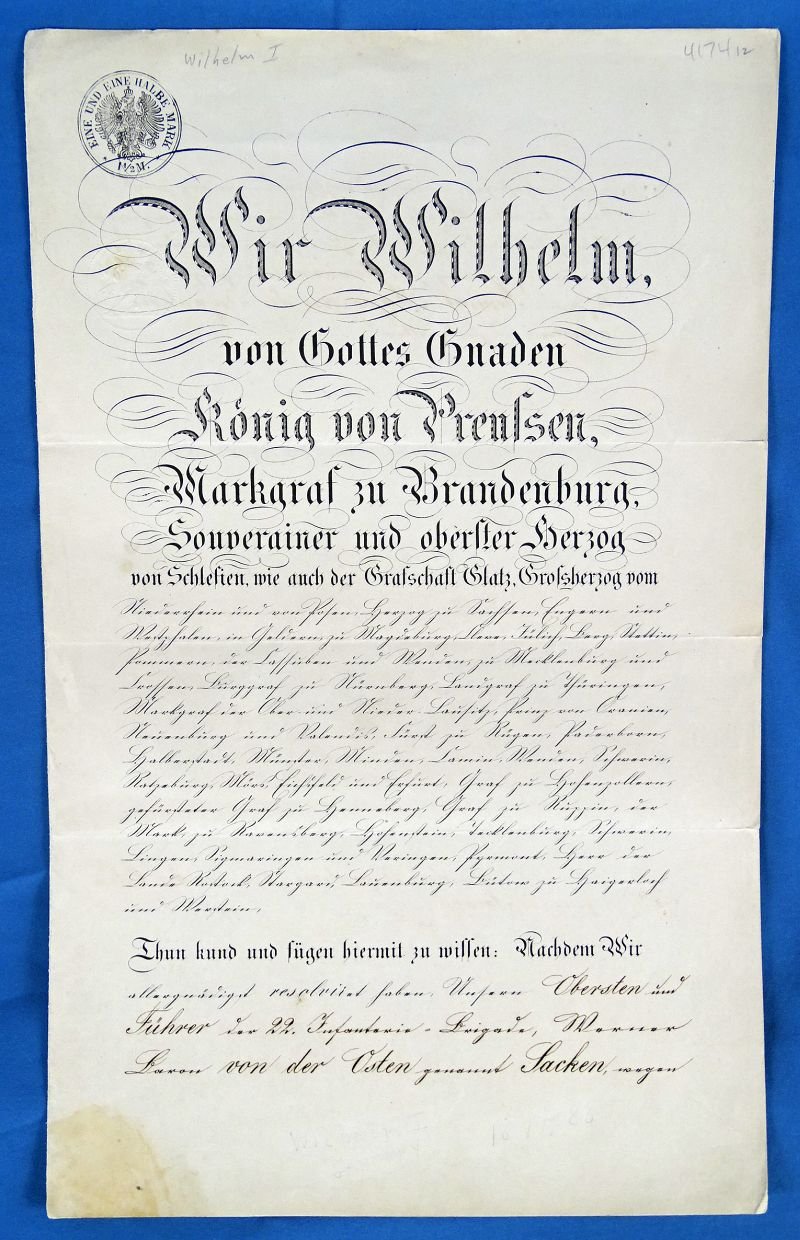 Wilhelm I
4174 12
EINE UND EINE HALBE MARK
1 1/2 M.
Wir Wilhelm,
von Gottes Gnaden
König von Preuſsen,
Markgraf zu Brandenburg,
Souverainer und oberſter Herzog
von Schleſien, wie auch der Grafſchaft Glatz, Groſsherzog vom
Niederrhein und von Posen, Herzog zu Sachsen, Engern und
Westphalen, in Geldern, zu Magdeburg, Cleve, Jülich, Berg, Stettin,
Pommern, der Cassuben und Wenden, zu Mecklenburg und
Crossen, Burggraf zu Nürnberg, Landgraf zu Thüringen,
Markgraf der Ober- und Nieder-Lausitz, Prinz von Oranien,
Neuenburg und Valendis, Fürst zu Rügen, Paderborn,
Halberstadt, Münster, Minden, Camin, Wenden, Schwerin,
Ratzeburg, Mörs, Eichsfeld und Erfurt, Graf zu Hohenzollern,
gefürsteter Graf zu Henneberg, Graf zu Ruppin, der
Mark, zu Ravensberg, Hohenstein, Tecklenburg, Schwerin,
Lingen, Sigmaringen und Veringen, Pyrmont, Herr der
Lande Rostock, Stargard, Lauenburg, Bütow, zu Haigerloch
und Werstein,
Thun kund und fügen hiermit zu wiſſen: Nachdem Wir
allergnädigst resolviret haben, Unsern Obersten und
Führer der 22. Infanterie-Brigade, Werner
Baron von der Osten genannt Sacken, wegen